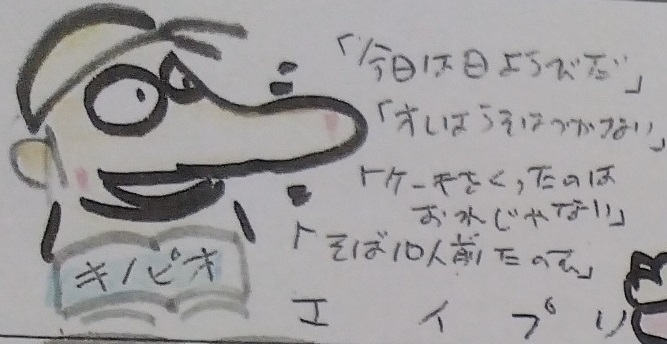 「今日は日ようびだ」
「オレはうそはつかない」
「ケーキをくったのは
おれじゃない」
「そば10人前たのむ」
キノピオ
エイプリ